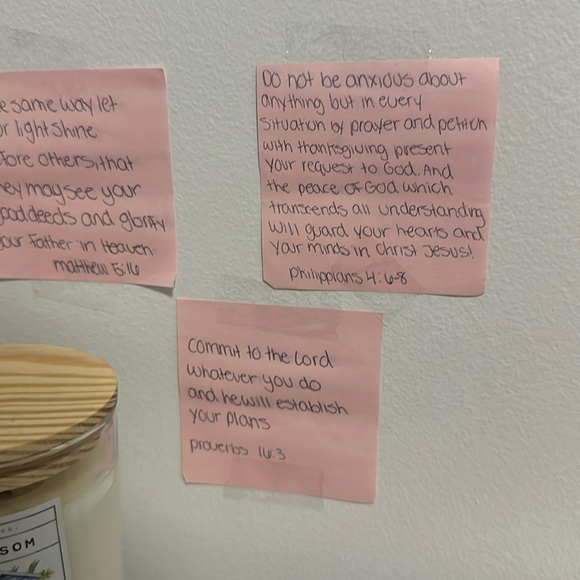 e same way let
r light shine
fore others, that
hey may see your
good deeds and glorify
your Father in Heaven.
matthew 5:16
DO not be anxious about
anything but in every
situation by prayer and petition
with thanksgiving present
your request to God. And
the peace of God which
transcends all understanding
will guard your hearts and
your minds in Christ Jesus!
Philippians 4:6-8
commit to the Lord
whatever you do
and he will establish
your plans
proverbs 16:3
SOM